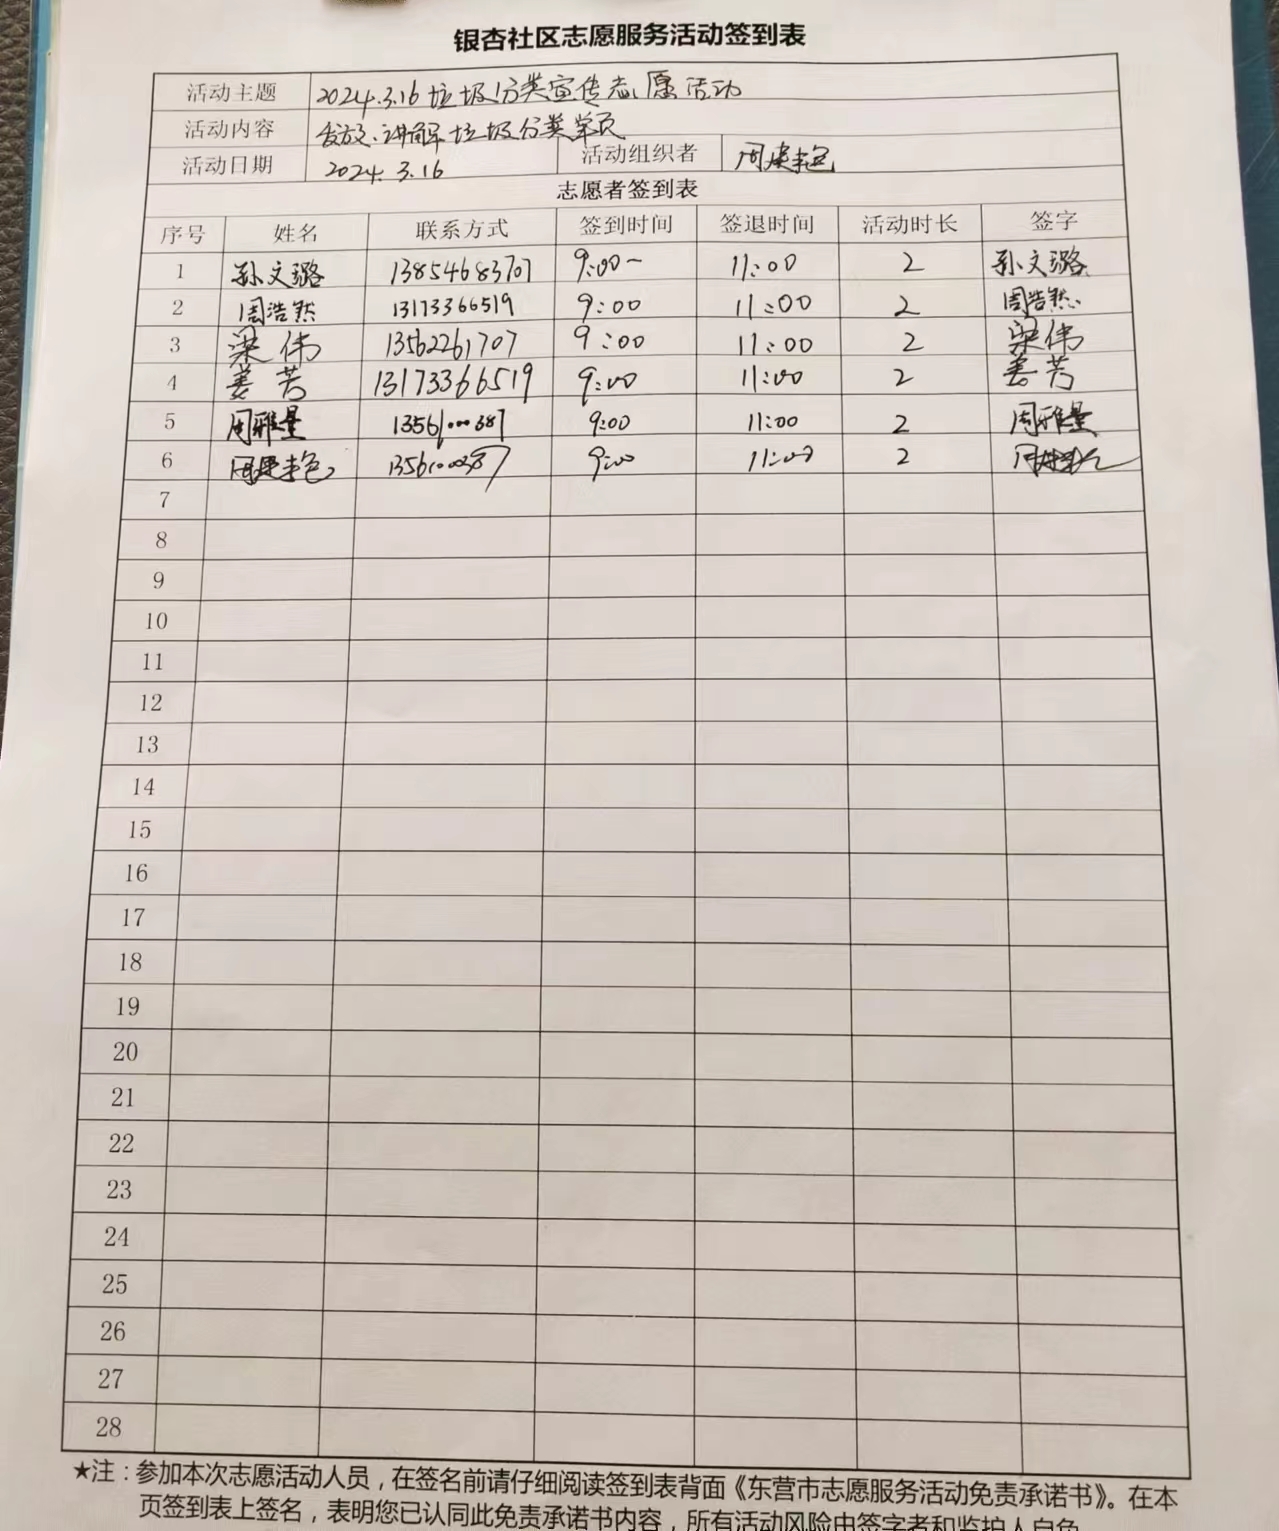 银杏社区志愿服务活动签到表
活动主题 2024.3.16 垃圾分类宣传志愿活动
活动内容 发放、讲解垃圾分类单页
活动日期 2024.3.16 活动组织者 周建
志愿者签到表
序号 姓名 联系方式 签到时间 签退时间 活动时长 签字
1 孙文璐 13854683707 9:00- 11:00 2 孙文璐
2 周浩然 13173366519 9:00 11:00 2 周浩然
3 梁伟 13562261707 9:00 11:00 2 梁伟
4 姜芳 13173366519 9:00 11:00 2 姜芳
5 周雅量 13561000387 9:00 11:00 2 周雅量
6 周建 13561000387 9:00 11:00 2
7
8
9
10
11
12
13
14
15
16
17
18
19
20
21
22
23
24
25
26
27
28
★注：参加本次志愿活动人员，在签名前请仔细阅读签到表背面《东营市志愿服务活动免责承诺书》。在本
页签到表上签名，表明您已认同此免责承诺书内容，所有活动风险由签字者和监护人自负